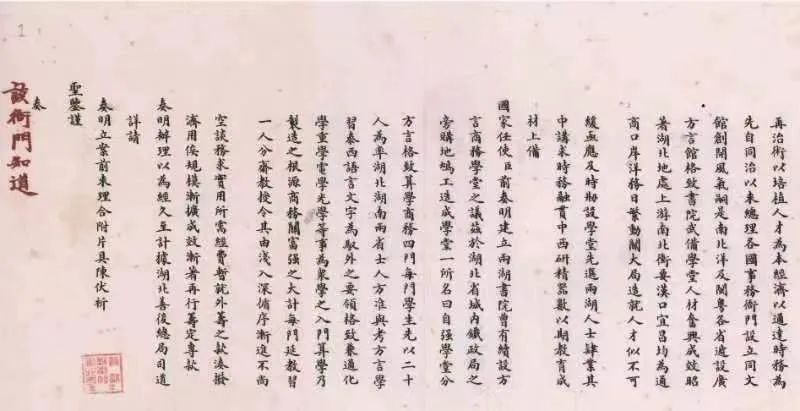 再治術以培植人才為本經濟以通達時務為
先自同治以來總理各國事務衙門設立同文
館創開風氣嗣是南北洋及閩粵各省遞設廣
方言館格致書院武備學堂人材奮興成效昭
著湖北地處上游南北衝要漢口宜昌均為通
商口岸洋務日繁動關大局造就人才似不可
緩亟應及時刱設學堂先選兩湖人士肄業其
中講求時務融貫中西研精器數以期教育成
材上備
國家任使臣前奏明建立兩湖書院曾有續設方
言商務學堂之議茲於湖北省城內鐵政局之
旁購地鳩工造成學堂一所名曰自强學堂分
方言格致算學商務四門每門學生先以二十
人為率湖北湖南兩省士人方准與考方言學
習泰西語言文字為馭外之要領格致兼通化
學重學電學光學等事為衆學之入門算學乃
製造之根源商務關富强之大計每門延教習
一人分齋教授令其由淺入深循序漸進不尚
空談務求實用所需經費暫就外籌之款湊撥
濟用俟規模漸擴成效漸著再行籌定專款
奏明辦理以為經久至計據湖北善後總局司道
詳請
奏明立案前來理合附片具陳伏祈
聖鑒謹
奏
該衙門知道
1